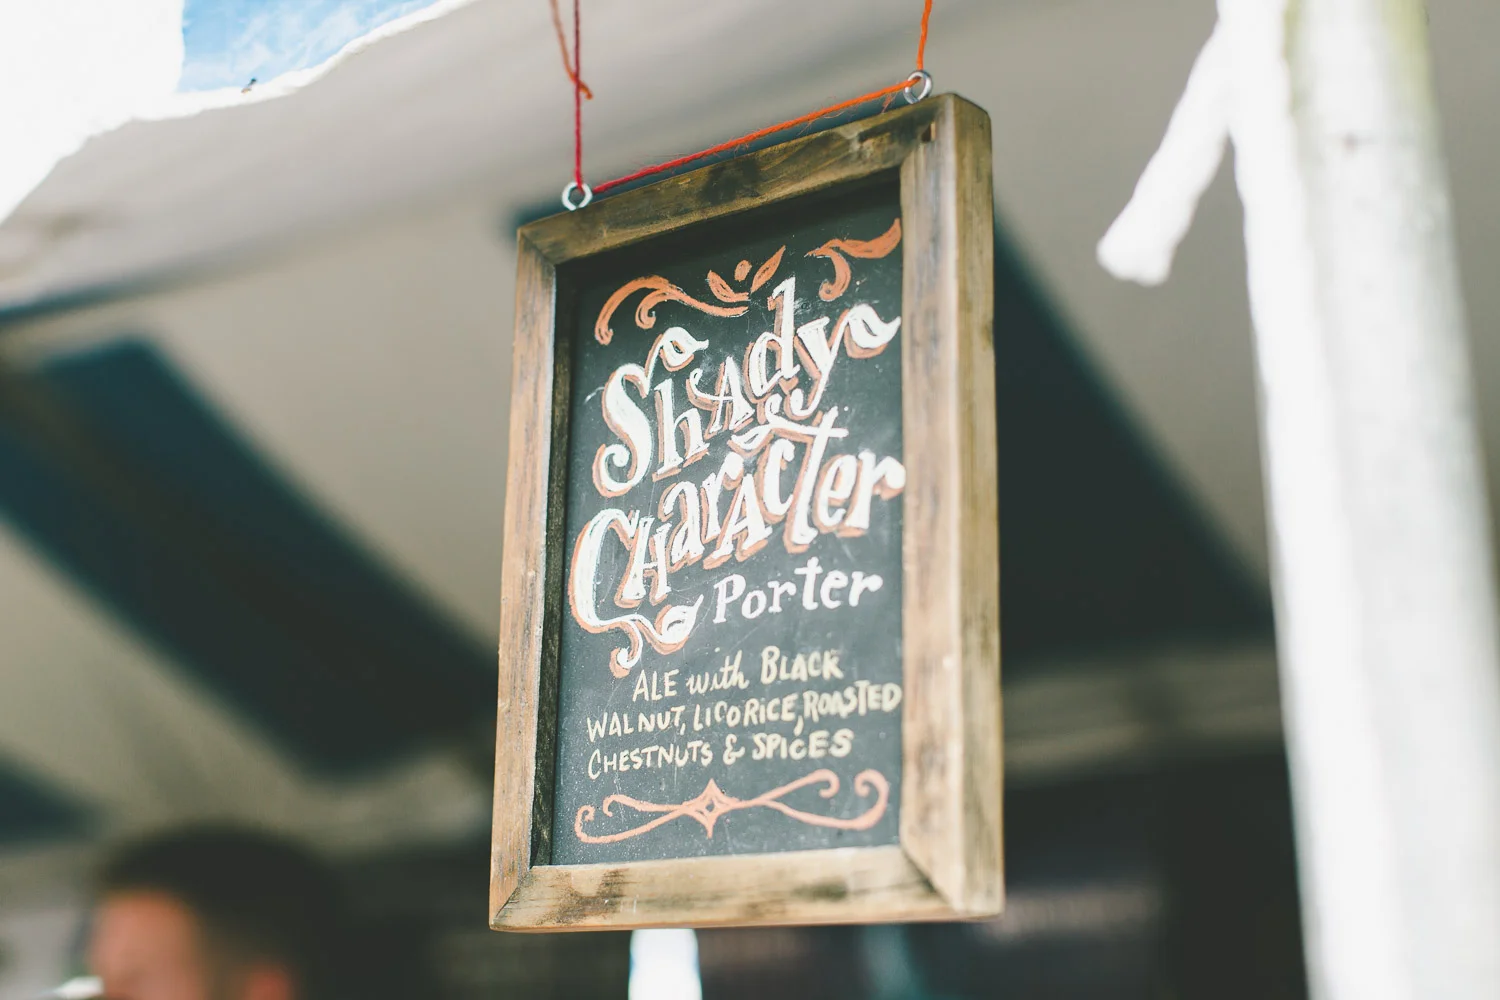 Shady
Character
Porter
ALE with BLACK
WALNUT, LICORICE, ROASTED
CHESTNUTS & SPICES